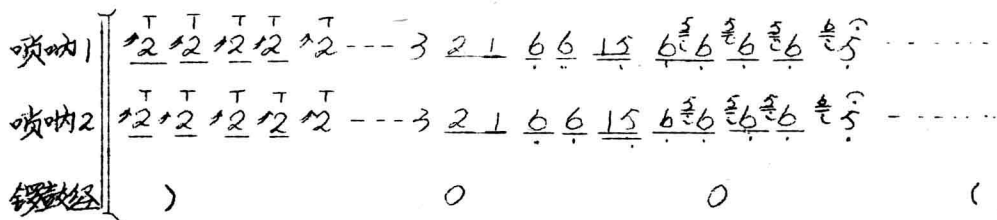 唢呐1 2 2 2 2 2 --- 3 2 1 6 6 1 5 6 6 6 6 5 ·······
唢呐2 2 2 2 2 2 --- 3 2 1 6 6 1 5 6 6 6 6 5 - ······
锣鼓经 ) 0 0 (